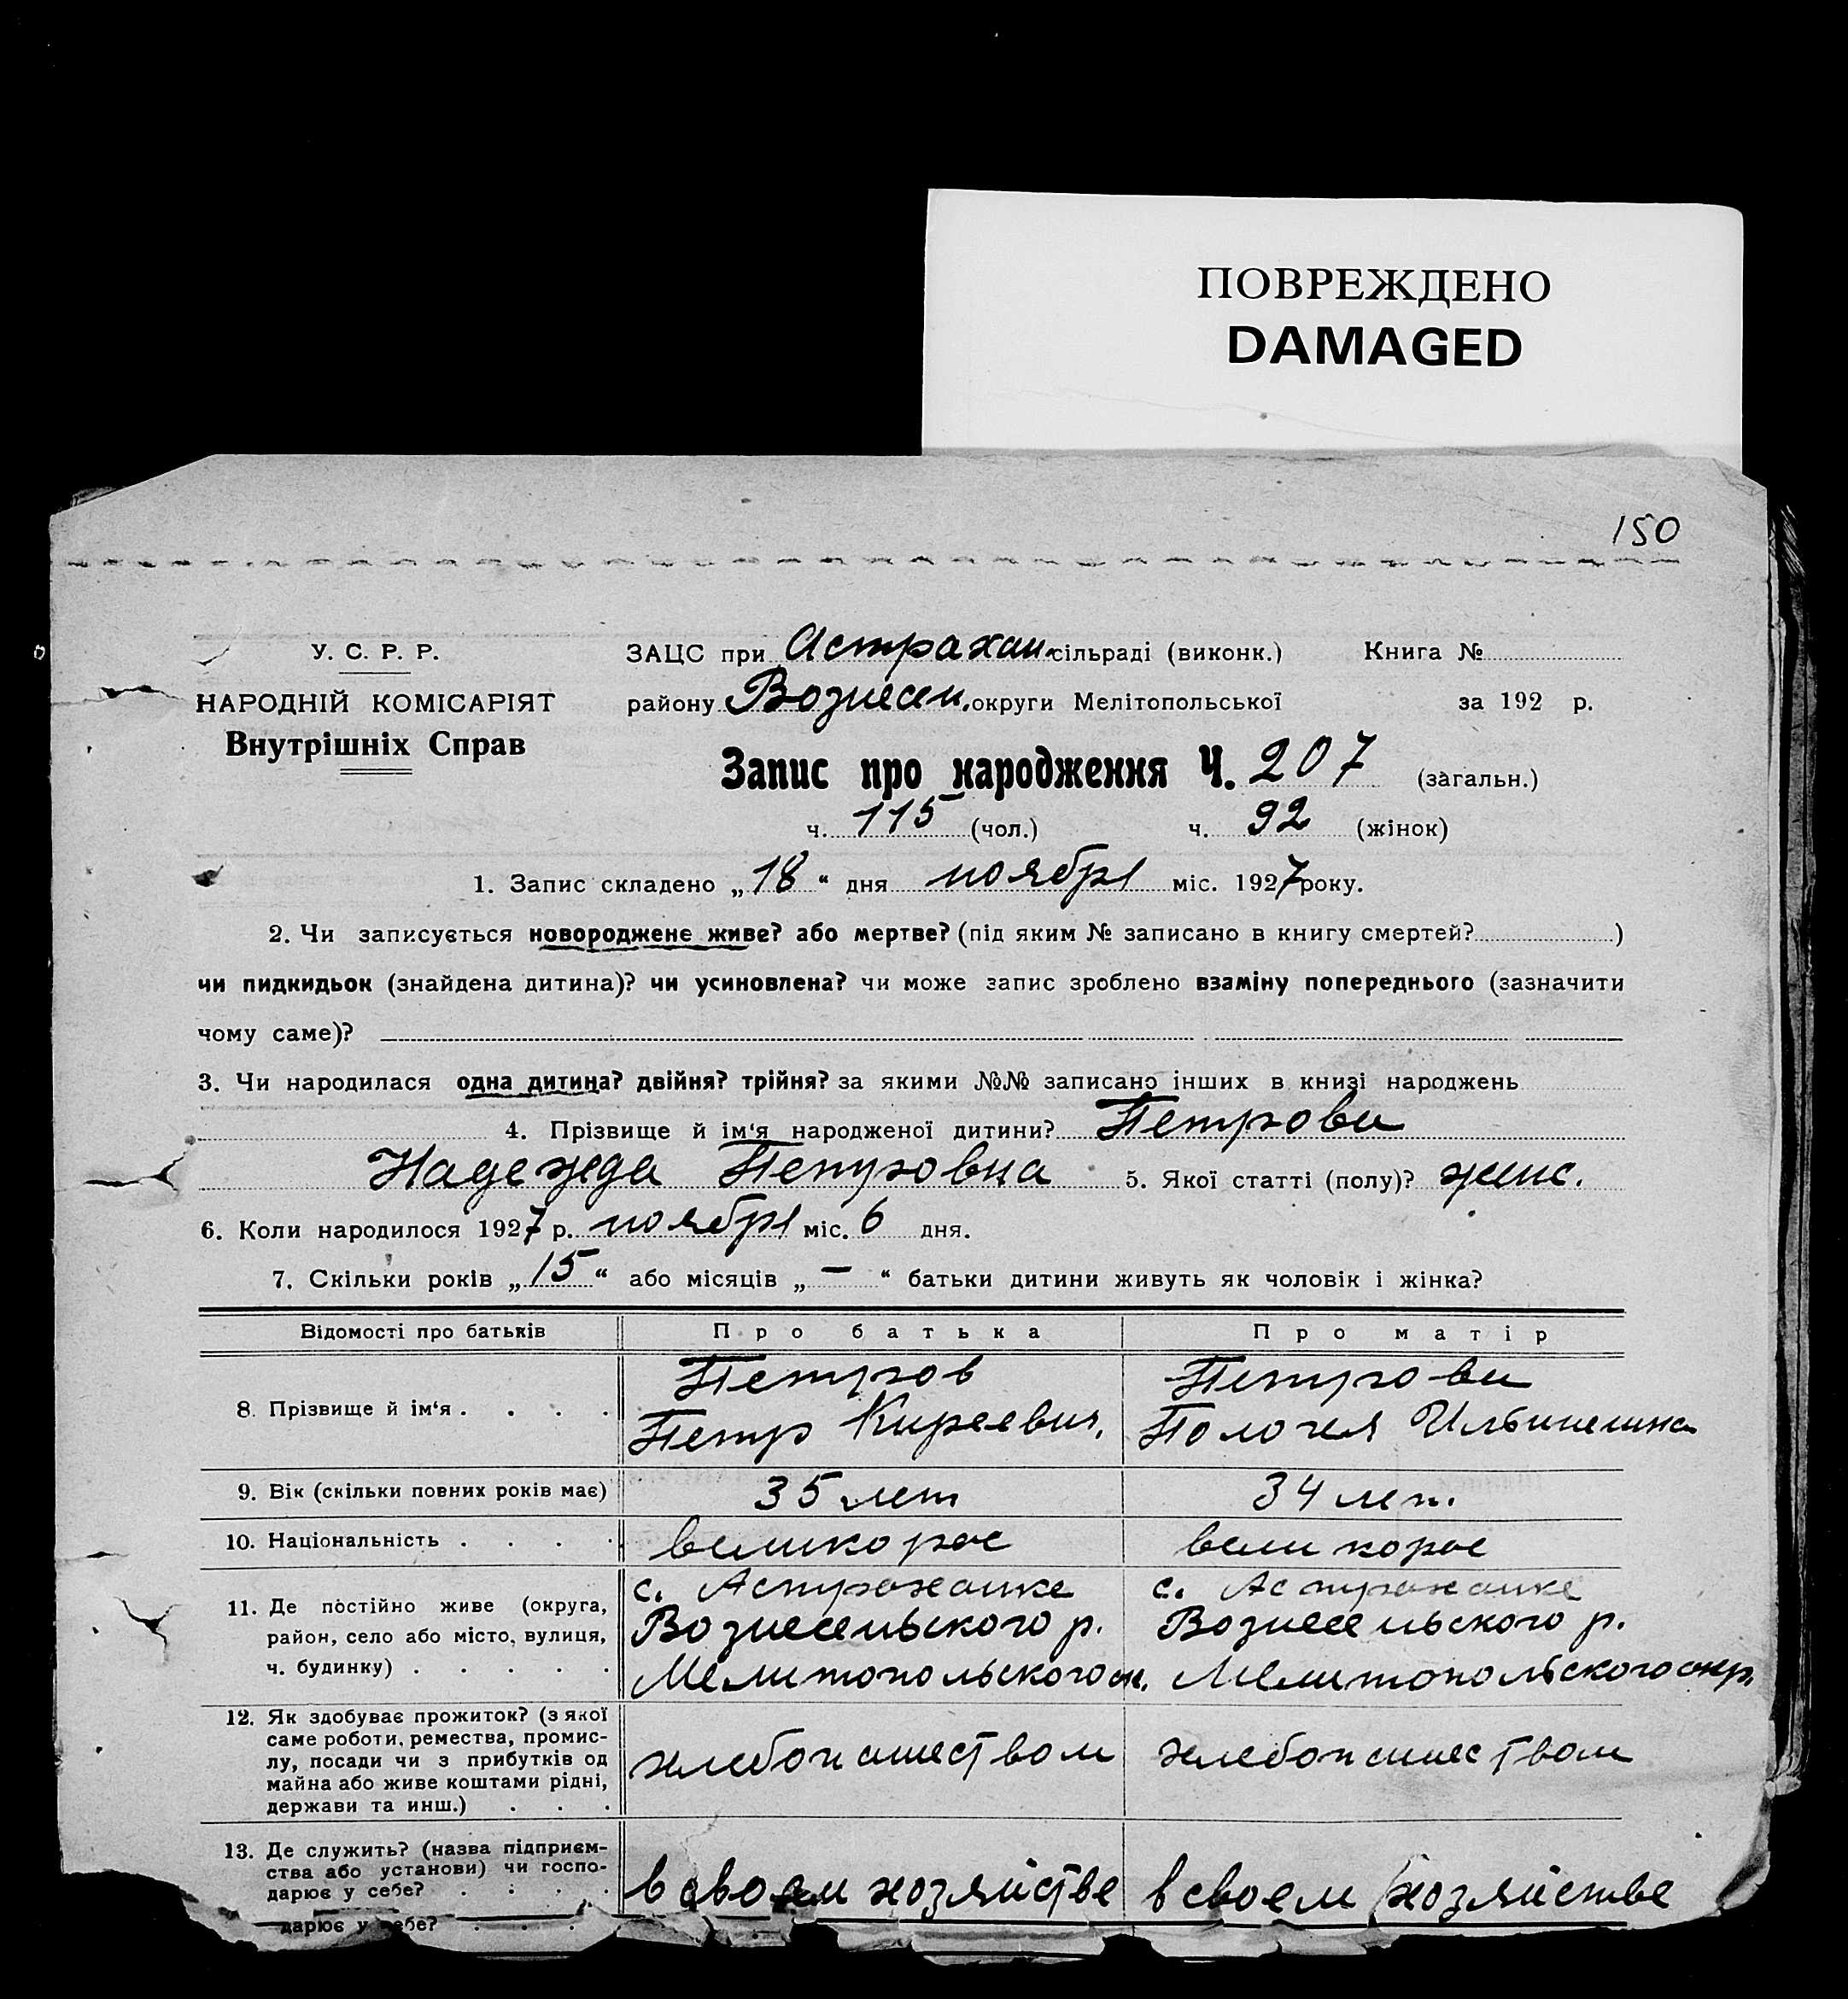 ПОВРЕЖДЕНО
DAMAGED
150
У. С. Р. Р.
НАРОДНІЙ КОМІСАРІЯТ
Внутрішніх Справ
ЗАЦС при Астрахан. сільраді (виконк.) Книга №
району Вознесен. округи Мелітопольської за 192 р.
Запис про народження Ч. 207 (загальн.)
ч. 115 (чол.) ч. 92 (жінок)
1. Запис складено „18“ дня ноября міс. 1927 року.
2. Чи записується новороджене живе? або мертве? (під яким № записано в книгу смертей? )
чи пидкидьок (знайдена дитина)? чи усиновлена? чи може запис зроблено взаміну попереднього (зазначити
чому саме)?
3. Чи народилася одна дитина? двійня? трійня? за якими №№ записано інших в книзі народжень
4. Прізвище й ім‘я народженої дитини? Петрова
Надежда Петровна 5. Якої статті (полу)? женс.
6. Коли народилося 1927 р. ноября міс. 6 дня.
7. Скільки років „15“ або місяців „—“ батьки дитини живуть як чоловік і жінка?
Відомості про батьків Про батька Про матір
8. Прізвище й ім‘я . . . .
Петров
Петр Киреевич.
Петрова
9. Вік (скільки повних років має) 35 лет 34 лет.
10. Національність . . . . великорос великорос
11. Де постійно живе (округа,
район, село або місто, вулиця,
ч. будинку) . . . . .
с. Астраханке
Вознесеньского р.
Мелитопольского ок.
с. Астраханке
Вознесеньского р.
Мелитопольского окр.
12. Як здобуває прожиток? (з якої
саме роботи, ремества, промис-
лу, посади чи з прибутків од
майна або живе коштами рідні,
держави та инш.) . . .
хлебопашеством хлебопашеством
13. Де служить? (назва підприєм-
ства або установи) чи госпо-
дарює у себе? . . . .
в своем хозяйстве в своем хозяйстве
дарює у себе? . . .